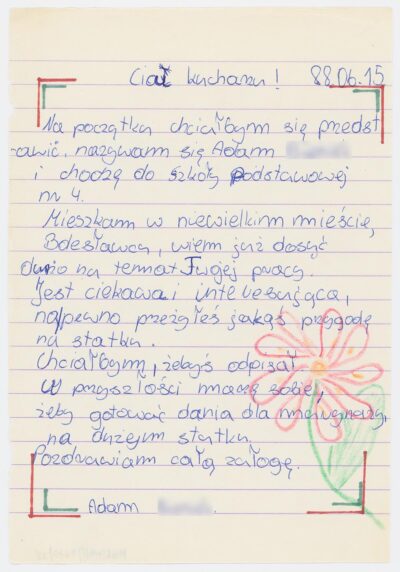 Ciał kucharzu! 88.06.15
Na początku chciałbym się przedst
-awić, nazywam się Adam
i chodzę do szkoły Podstawowej
nr 4.
Mieszkam w niewielkim mieście,
Bolesławcu, wiem już dosyć
dużo na temat Twojej pracy.
Jest ciekawa i interesująca,
napewno przeżyłeś jakąś przygodę
na statku.
Chciałbym, żebyś odpisał
W przyszłości marzę sobie,
żeby gotować dania dla marynarzy,
na dużym statku.
Pozdrawiam całą załogę.
Adam